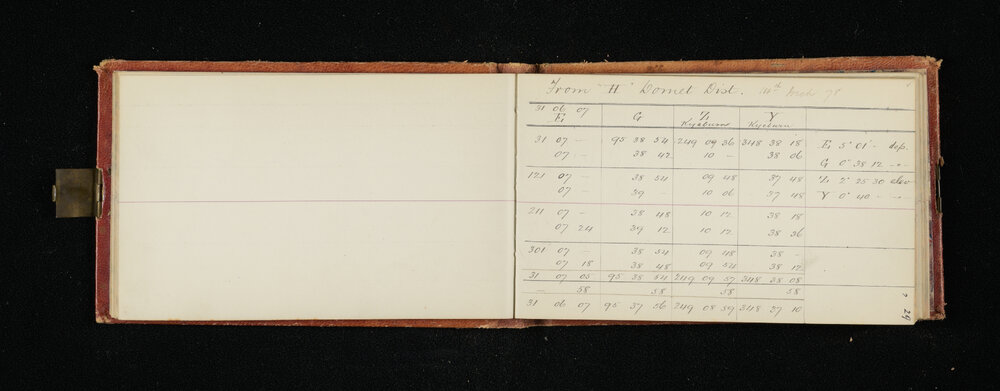 From "H" Domet Dist. 14th 78
31 06 07
E G Z Y
Kyeburn Kyeburn
31 07 - 95 38 54 249 09 36 348 38 18 E 5° 01' - dep.
07 - 38 42 10 - 38 06 G 0° 38 12 -"-
121 07 - 38 54 09 48 37 48 Z 2° 25 30 elev
07 - 39 - 10 06 37 48 Y 0° 40 - -"-
211 07 - 38 48 10 12 38 18
07 24 39 12 10 12 38 36
301 07 - 38 54 09 48 38 -
07 18 38 48 09 54 38 12
31 07 05 95 38 54 249 09 57 348 38 08
- 58 58 58 58
31 06 07 95 37 56 249 08 59 348 37 10
29